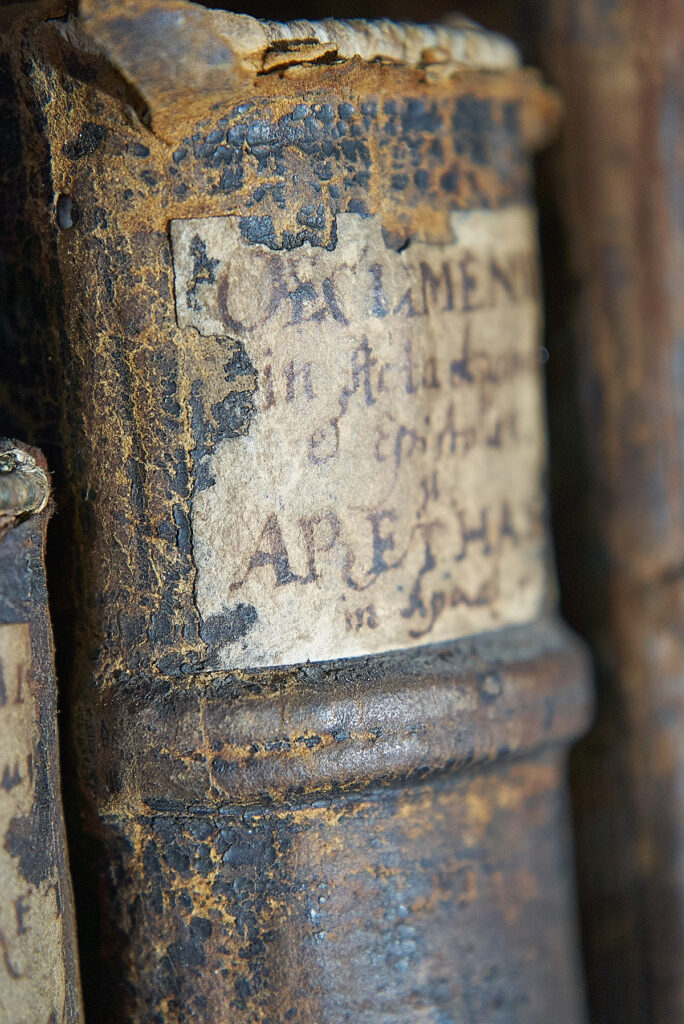 OECUMENI
in Acta
& Epistolas
ARETHAS
in Apoc